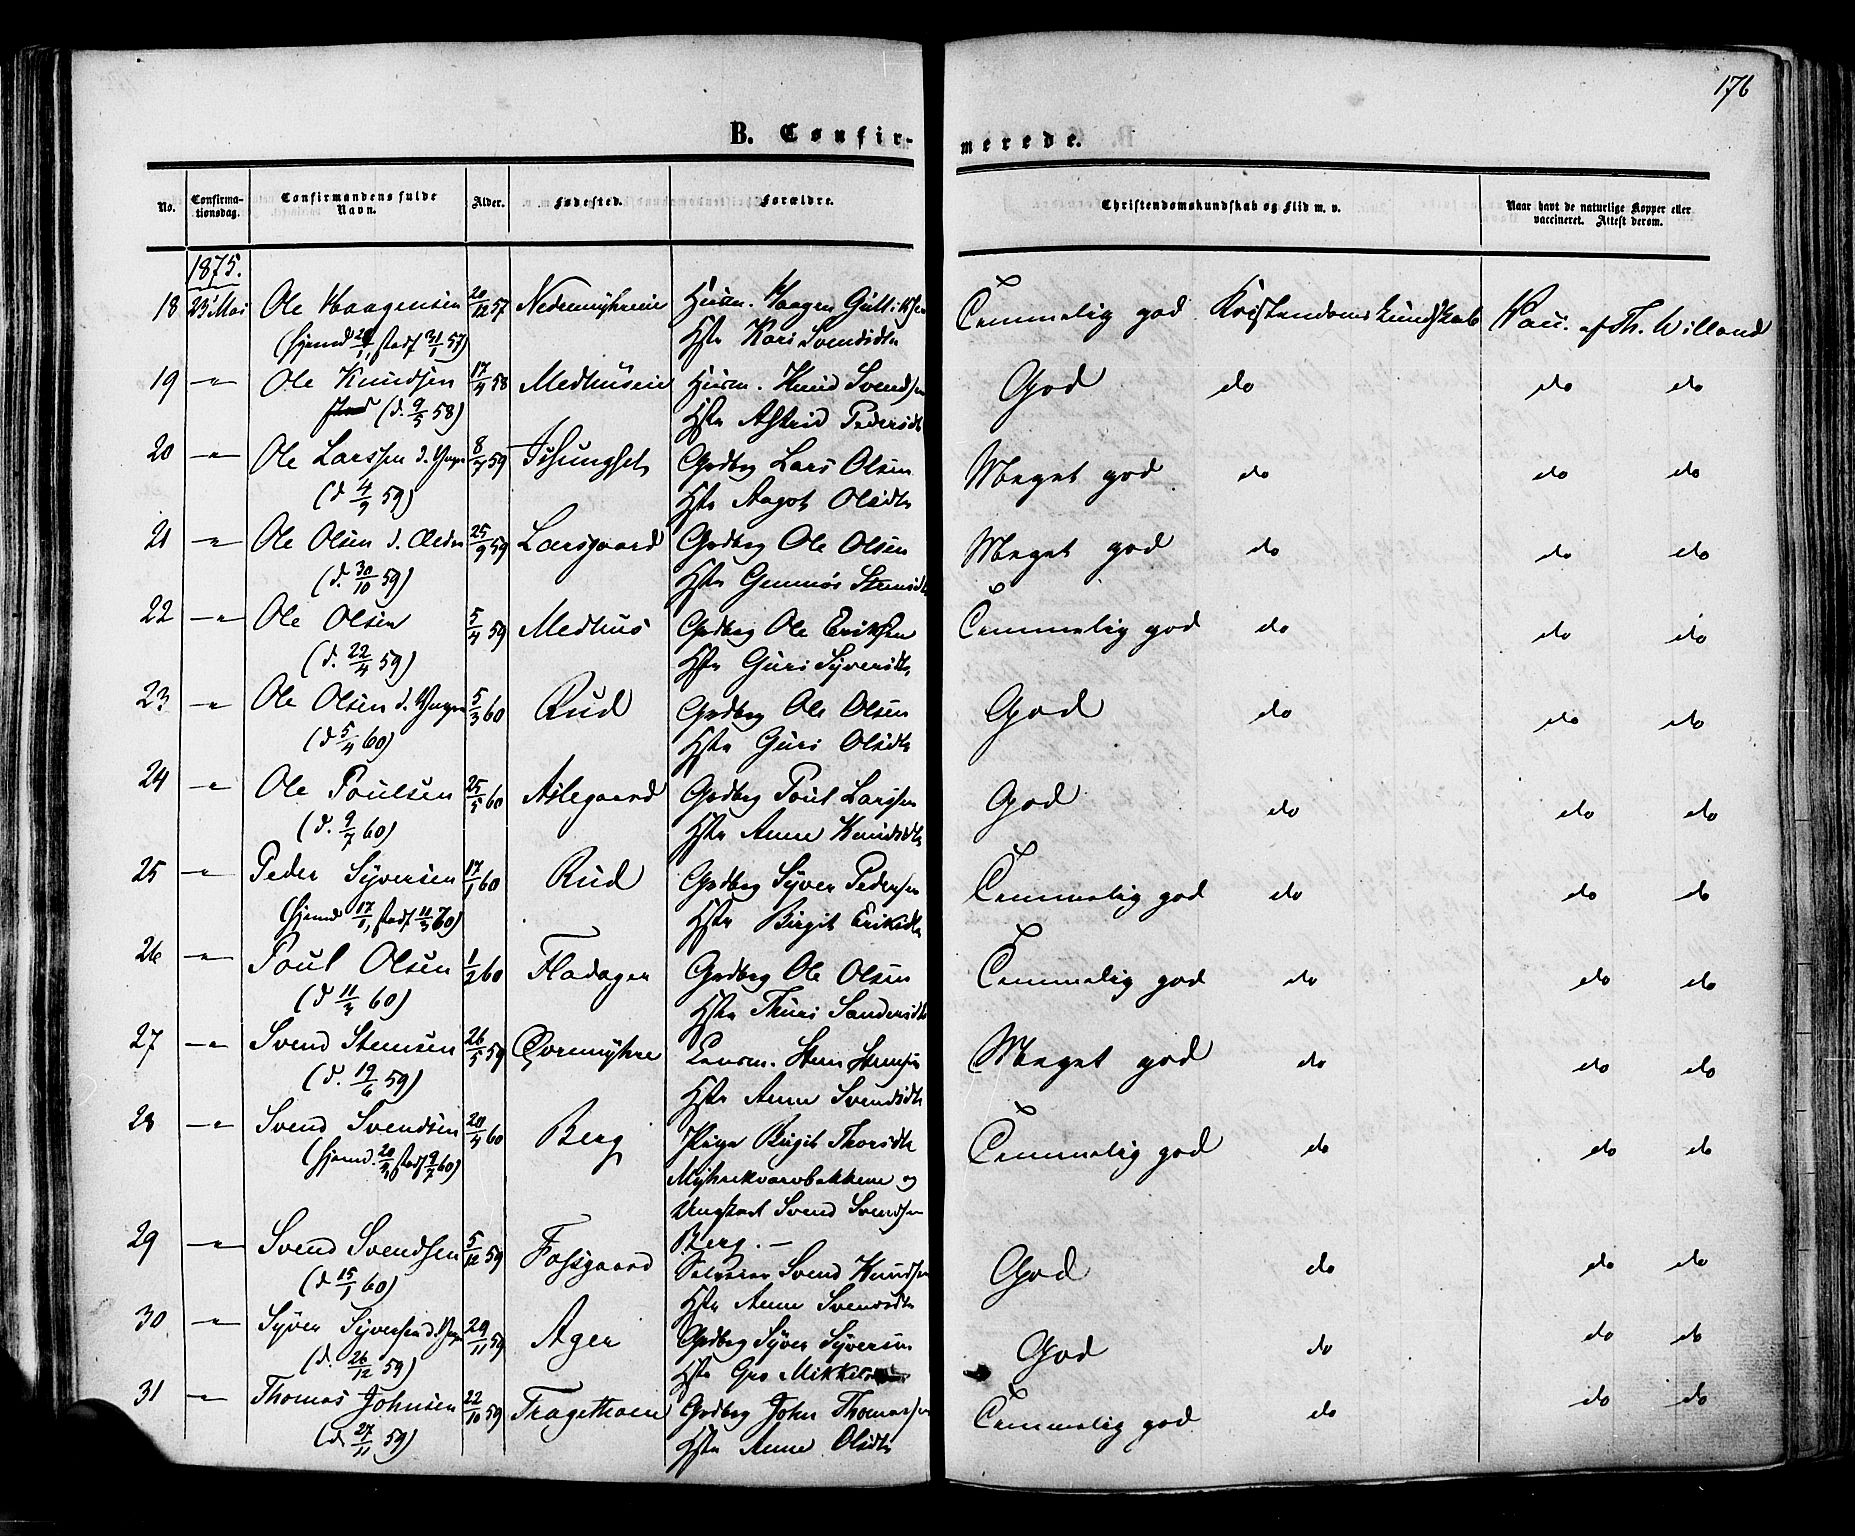 176
B. Confirmerede.
No. Confirmationsdag. Confirmandens fulde Navn. Alder. Fødested. Forældre. Christendomskundskab og Flid m. v. Naar havt de naturlige Kopper eller vaccineret. Attest derom.
1875.
18 23' Mai Ole Haagensen 20/12 57 Nedremyhreie Husm. Haagen Gulliksen Temmelig god Kristendomskundskab Vac. af Th. Willand
(hjemd 20/1, stadf 31/1 57) Hstr Kari Svendsdtr
19 -"- Ole Knudsen 17/4 58 Medhuseie Husm. Knud Svendsen God do do do
(d. 9/5 58) Hstr Astrid Pedersdtr
20 -"- Ole Larssen d. Yngre 8/7 59 Ishungset Grdbrg Lars Olsen Meget god do do do
(d 4/9 59) Hstr Aagot Olsdtr
21 -"- Ole Olsen d. Ældre 25/9 59 Larsgaard Grdbrg Ole Olsen Meget god do do do
(d. 30/10 59) Hstr Gunnös Stensdtr
22 -"- Ole Olsen 5/4 59 Medhus Grdbrg Ole Eriksen Temmelig god do do do
(d. 22/4 59) Hstr Guri Syversdtr
23 -"- Ole Olsen d. Yngre 5/3 60 Rud Grdbrg Ole Olsen God do do do
(d 5/4 60) Hstr Guri Olsdtr
24 -"- Ole Poulsen 25/5 60 Aslegaard Grdbrg Poul Larssen God do do do
(d. 9/7 60) Hstr Anne Knudsdtr
25 -"- Peder Syversen 17/1 60 Rud Grdbrg Syver Pedersen Temmelig god do do do
(hjemd 17/1, stadf 11/3 60) Hstr Birgit Eriksdtr
26 -"- Poul Olsen 1/2 60 Fladager Grdbrg Ole Olsen Temmelig god do do do
(d 11/3 60) Hstr Thuri Sandersdtr
27 -"- Svend Stensen 26/5 59 Øvremyhre Lensm. Sten Stensen Meget god do do do
(d. 19/6 59) Hstr Anne Svendsdtr
28 -"- Svend Svendsen 20/4 60 Berg Pige Birgit Thorsdtr Temmelig god do do do
(hjemd. 20/4, stadf 9/7 60) Myhrekvarvbakkene og
Ungkarl Svend Svendsen
Berg. —
29 -"- Svend Svendsen 5/12 59 Fossgaard Selveier Svend Knudsen God do do do
(d 15/1 60) Hstr Anne Svendsdtr
30 -"- Syver Syversen d. Yngre 29/11 59 Ager Grdbrg Syver Syversen God do do do
(d. 26/12 59) Hstr Gro
31 -"- Thomas Johnsen 22/10 59 Tragethoen Grdbrg John Thomassen Temmelig god do do do
(d. 27/11 59) Hstr Anne Olsdtr